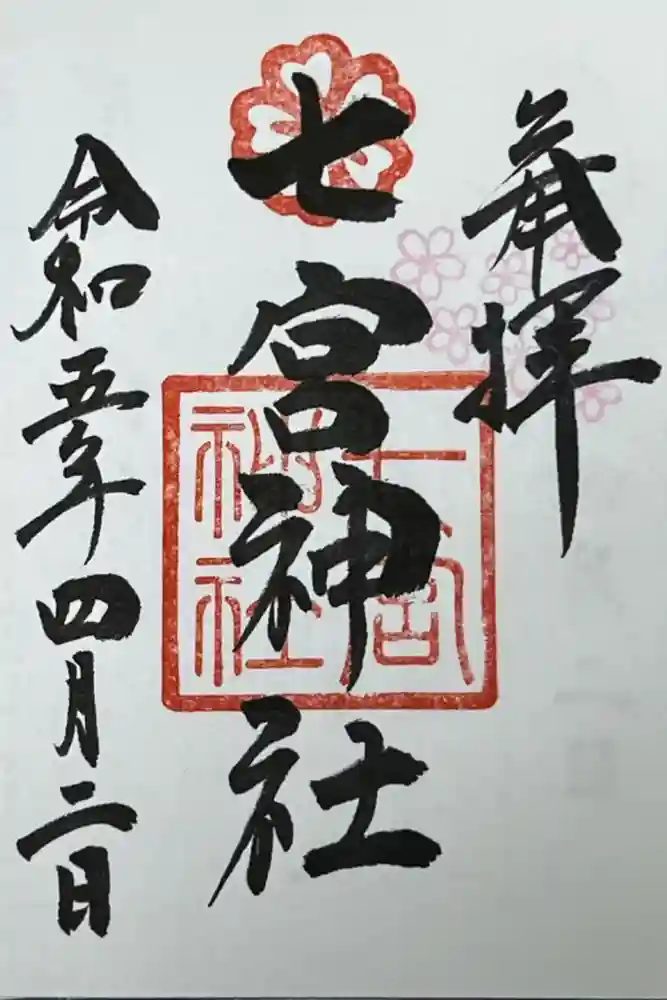 奉拝
七宮神社
七宮
神社
令和五年四月二日